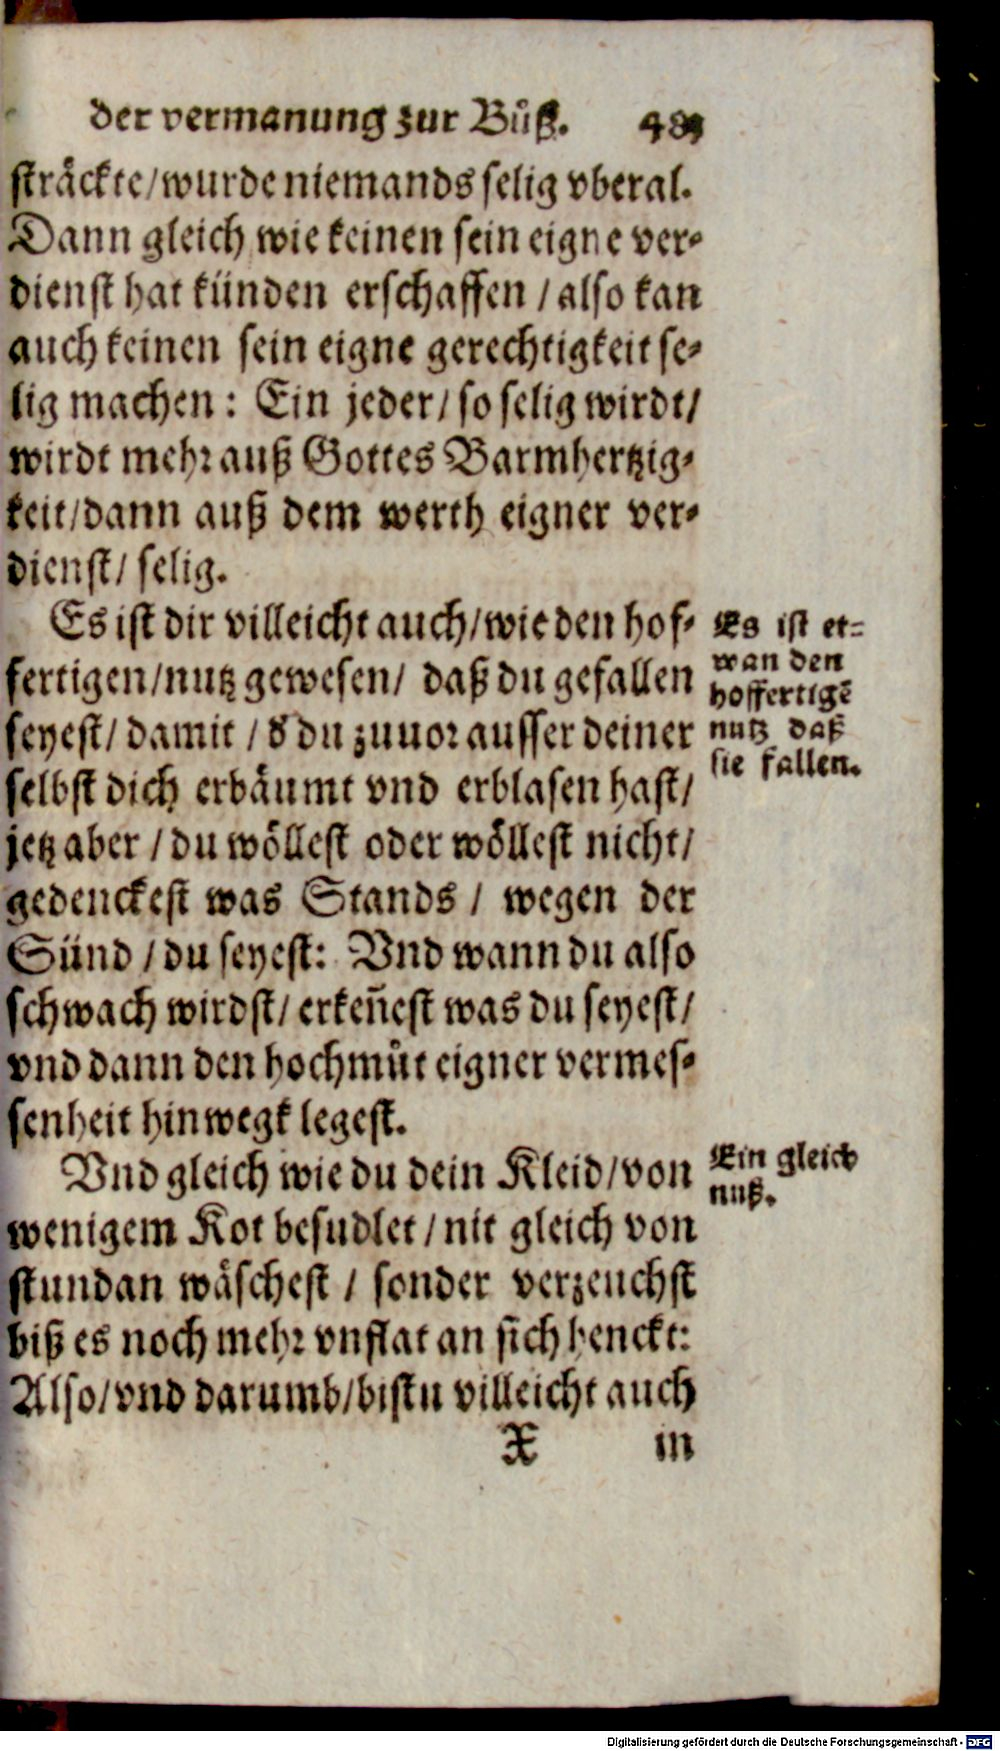 der vermanung zur Bůß.
sträckte/wurde niemands selig vberal.
Dann gleich wie keinen sein eigne ver-
dienst hat künden erschaffen / also kan
auch keinen sein eigne gerechtigkeit se-
lig machen : Ein jeder/ so selig wirdt/
wirdt mehr auß Gottes Barmhertzig-
keit/dann auß dem werth eigner ver-
dienst/ selig.
Es ist dir villeicht auch/wie den hof-
fertigen/nutz gewesen/ daß du gefallen
seyest/ damit / d du zuuor ausser deiner
selbst dich erbäumt vnd erblasen hast/
jetz aber / du wöllest oder wöllest nicht/
gedenckest was Stands / wegen der
Sünd / du seyest: Vnd wann du also
schwach wirdst/ erkeñest was du seyest/
vnd dann den hochmůt eigner vermes-
senheit hinwegk legest.
Es ist et=
wan den
hoffertigē
nutz daß
sie fallen.
Vnd gleich wie du dein Kleid/von
wenigem Kot besudlet / nit gleich von
stundan wäschest / sonder verzeuchst
biß es noch mehr vnflat an sich henckt:
Also/vnd darumb/bistu villeicht auch
Ein gleich
nuß.
X in
Digitalisierung gefördert durch die Deutsche Forschungsgemeinschaft - DFG